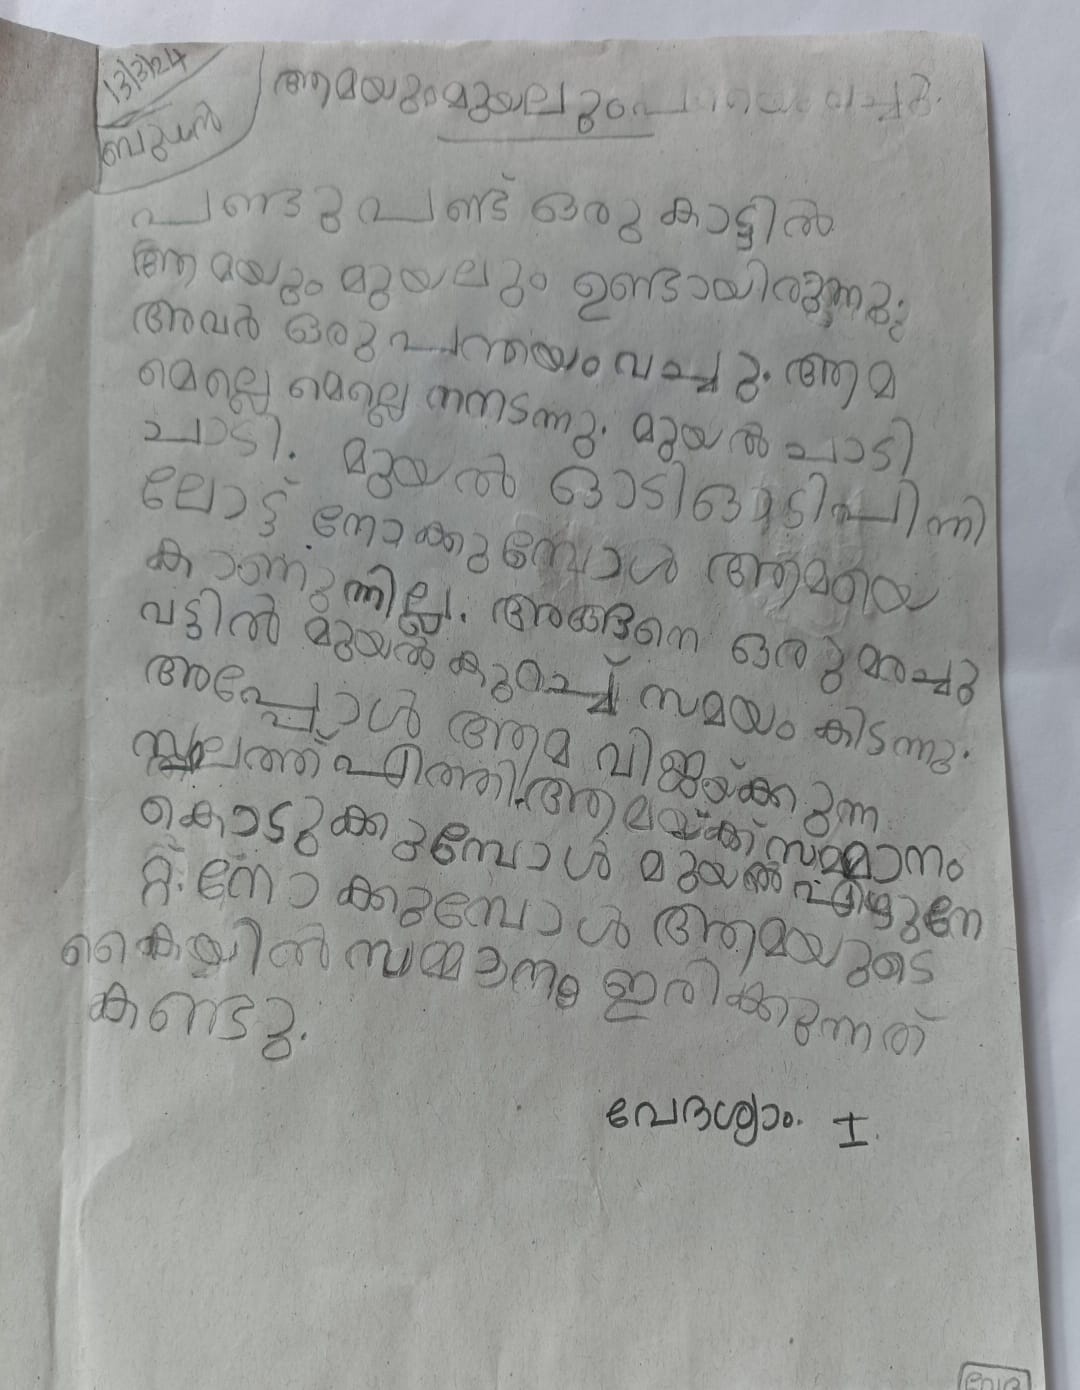 13/3/24
ബുധൻ
ആമയും മുയലും
പണ്ടു പണ്ട് ഒരു കാട്ടിൽ
ആമയും മുയലും ഉണ്ടായിരുന്നു.
അവർ ഒരു പന്തയം വച്ചു. ആമ
മെല്ലെ മെല്ലെ നനടന്നു. മുയൽ ചാടി
ചാടി. മുയൽ ഓടി ഓടി പിന്നി
ലോട്ട് നോക്കുമ്പോൾ ആമയെ
കാണുന്നില്ല. അങ്ങനെ ഒരു മരച്ചു
വട്ടിൽ മുയൽ കുറച്ച് സമയം കിടന്നു.
അപ്പോൾ ആമ വിജയ്ക്കുന്ന
സ്ഥലത്ത് എത്തി. ആമയ്ക്ക് സമ്മാനം
കൊടുക്കുമ്പോൾ മുയൽ എഴുനേ
റ്റ്. നോക്കുമ്പോൾ ആമയുടെ
കൈയിൽ സമ്മാനം ഇരിക്കുന്നത്
കണ്ടു.
വേദശ്യാം. I.